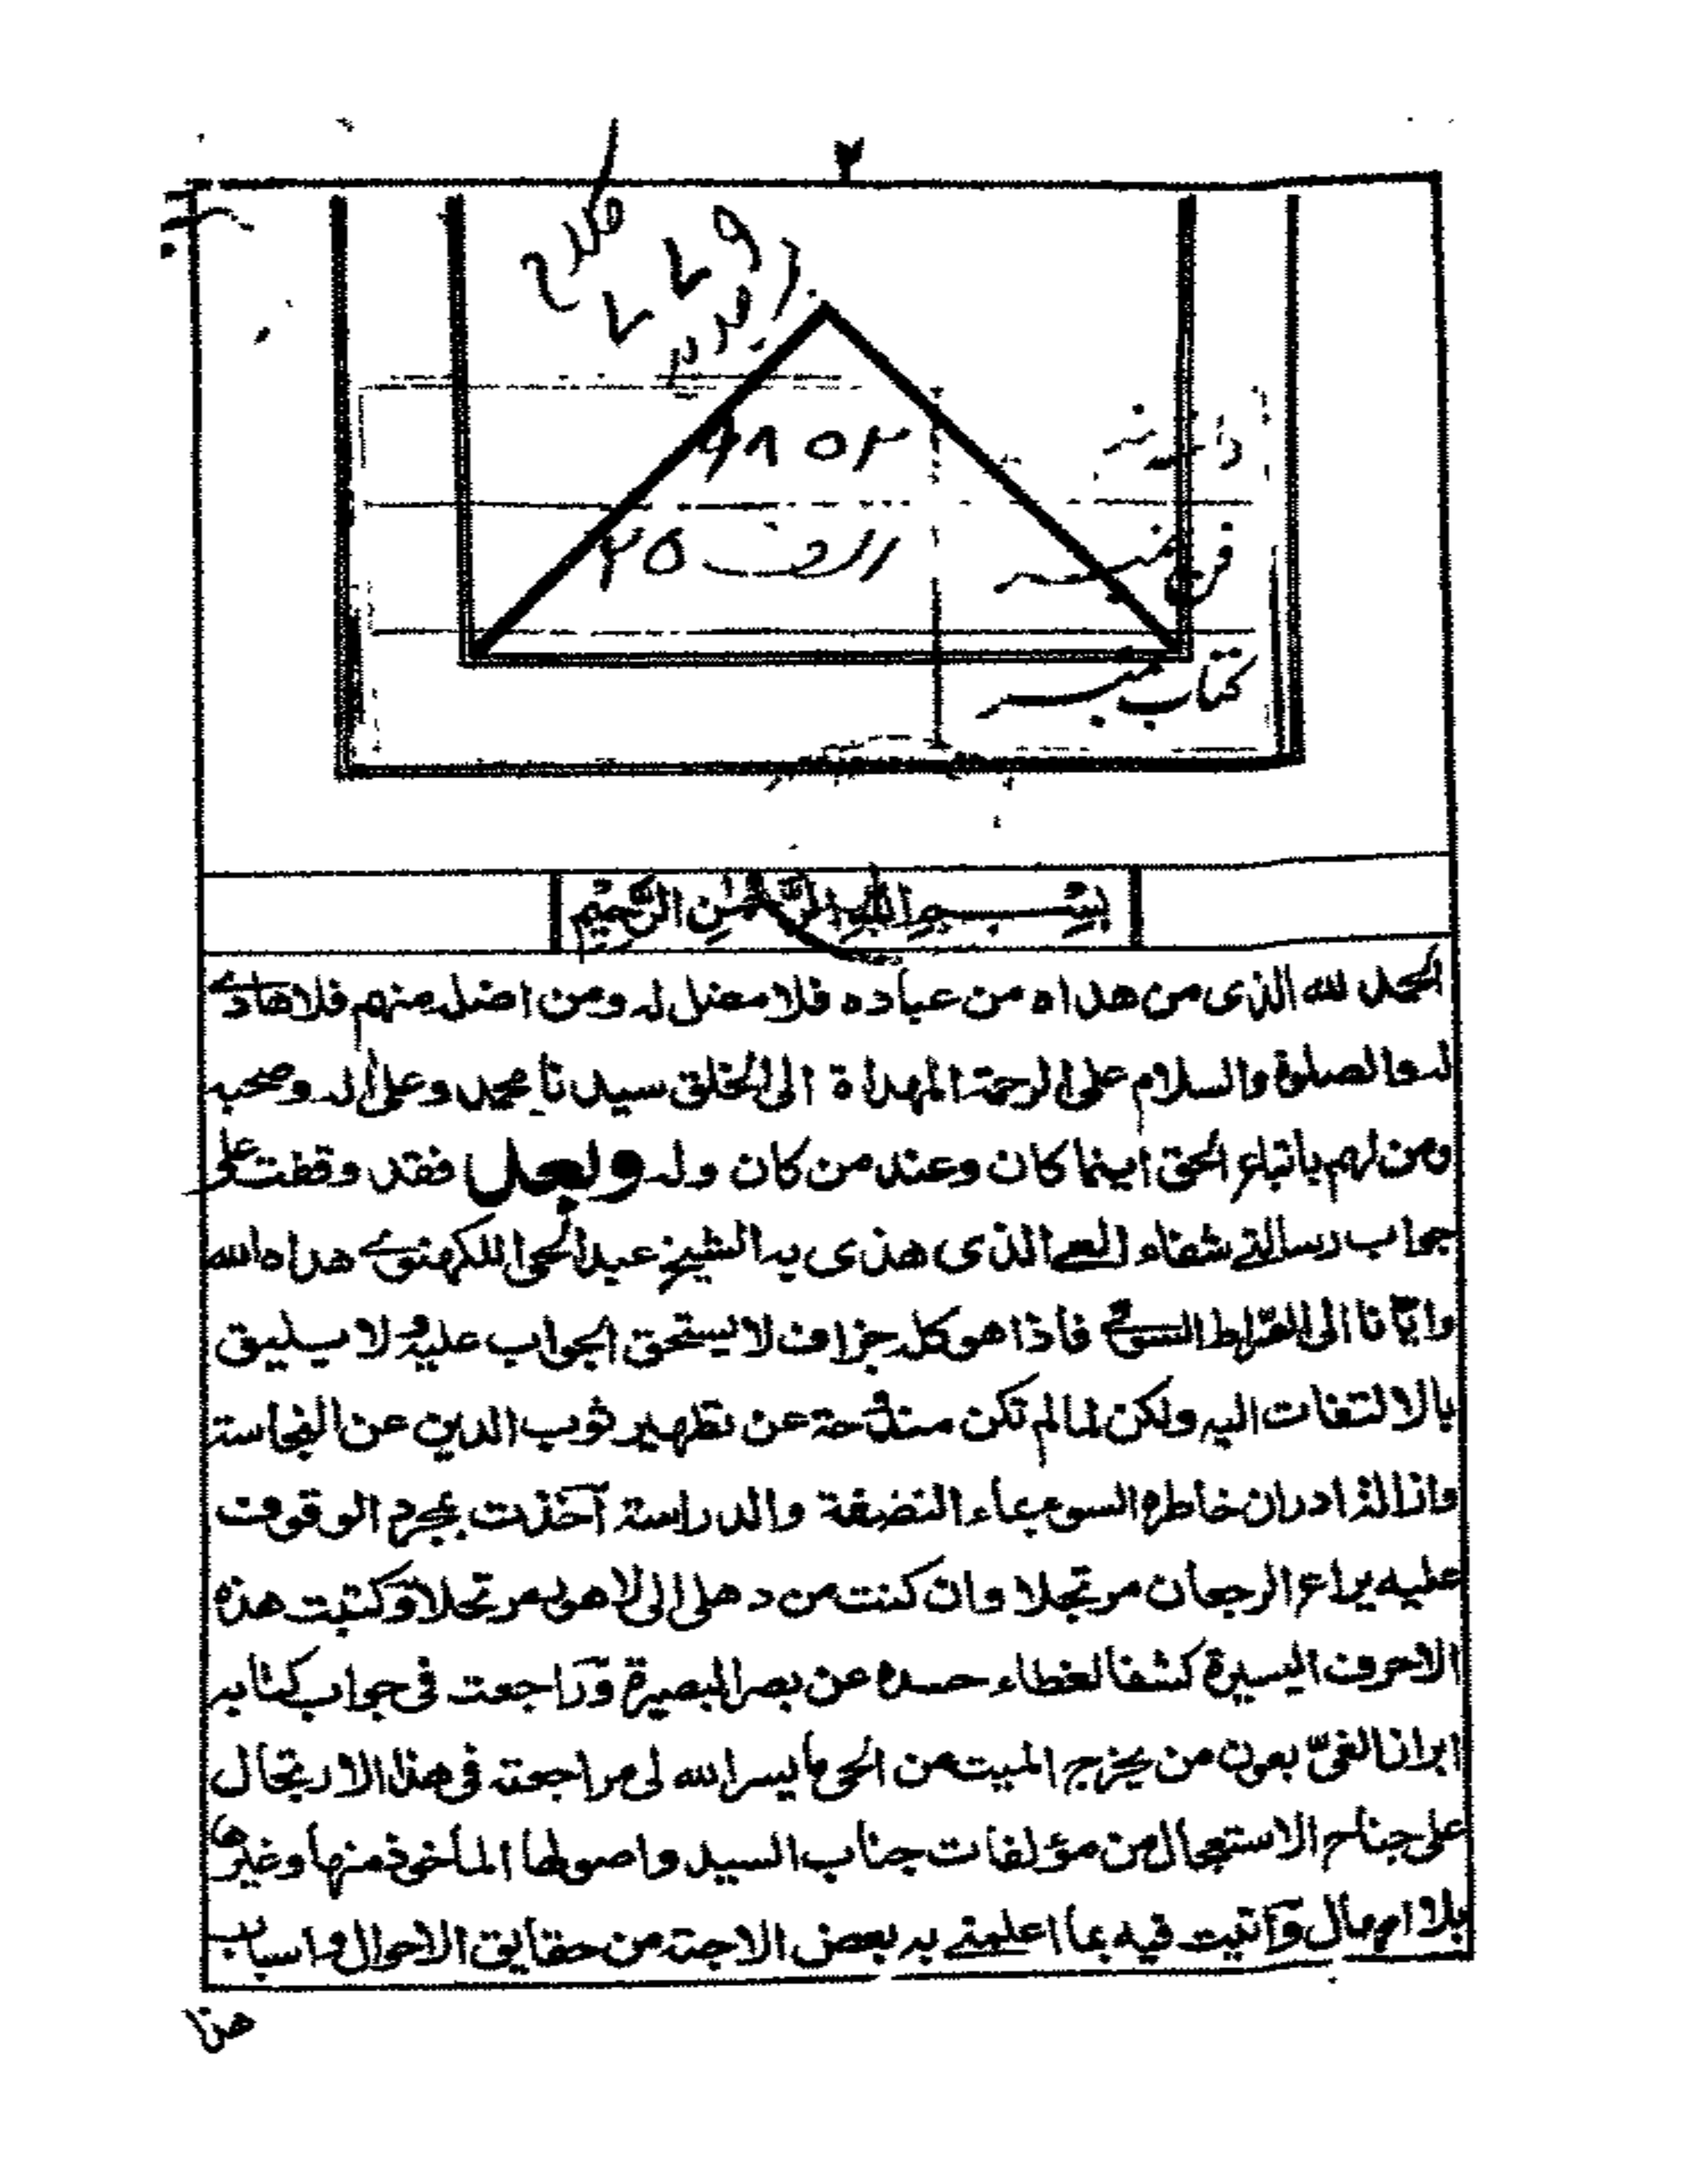 ٢
٩٨٥٢
الف ٢٥
فن نمبر
كتاب نمبر
بسم الله الرحمن الرحيم
الحمد لله الذى من هداه من عباده فلا مضل له ومن اضل منهم فلا هادے
له والصلوة والسلام على الرحمة المهداة الى الخلق سيدنا محمد وعلى اله وصحبه
ومن لهم باتباع الحق اينما كان وعند من كان وله وبعد فقد وقفت على
جواب رسالتے شفاء العے الذى هذى به الشيخ عبد الحى اللكهنوے هداه الله
وايّانا الى الصّراط السوے فاذا هو كله جزاف لا يستحق الجواب عليه ولا يليق
بالالتفات اليه ولكن لما لم تكن مندوحة عن تطهير ثوب الدين عن النجاسة
وانالة ادران خاطره السوء بماء النضفة والدراسة آخذت بمجرد الوقوف
عليه يراع الرجعان مرتجلا وان كنت من دهلى الى لاهور مرتحلا وكتبت هذه
الاحرف اليسيرة كشفا لغطاء حسده عن بصر البصيرة وراجعت فى جواب كتابه
ابراز الغىّ بعون من يخرج الميت من الحى ما يسر الله لى مراجعته فى هذا الارتحال
على جناح الاستعجال من مؤلفات جناب السيد واصولها المأخوذ منها وغيرها
بلا امهال وآتيت فيه بما اعلمنے به بعض الاحبة من حقايق الاحوال واسباب
هذا